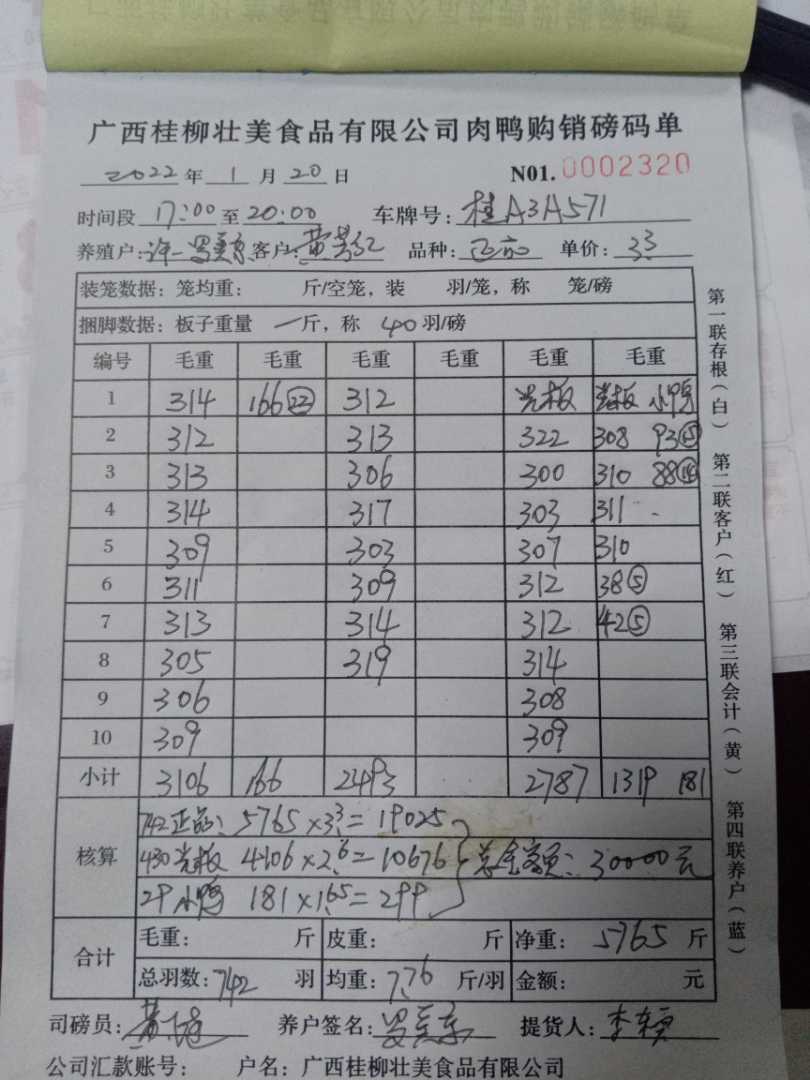 广西桂柳壮美食品有限公司肉鸭购销磅码单
2022年1月20日 N01.0002320
时间段17:00至20:00 车牌号:桂A3A571
养殖户: 客户: 品种:正品 单价:3.3
装笼数据:笼均重: 斤/空笼,装 羽/笼,称 笼/磅
捆脚数据:板子重量 一斤,称 40羽/磅
编号 毛重 毛重 毛重 毛重 毛重 毛重
1 314 166㉒ 312 光板 光板 小鸭
2 312 313 322 308 93⑮
3 313 306 300 310 88⑭
4 314 317 303 311
5 309 303 307 310
6 311 309 312 38⑤
7 313 314 312 42⑤
8 305 319 314
9 306 308
10 309 309
小计 3106 166 2493 2787 1319 181
核算
742正品:5765×3.3=19025
430光板 4106×2.6=10676 总金额:30000元
29小鸭 181×1.65=299
合计
毛重: 斤 皮重: 斤 净重:5765斤
总羽数:742羽 均重:7.76斤/羽 金额: 元
司磅员: 养户签名: 提货人:
公司汇款账号: 户名:广西桂柳壮美食品有限公司
第一联存根(白) 第二联客户(红) 第三联会计(黄) 第四联养户(蓝)